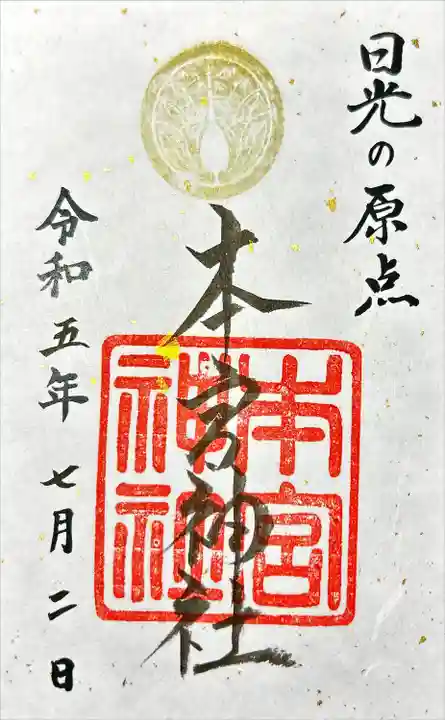 日光の原点
本宮神社
本宮神社
令和五年七月二日